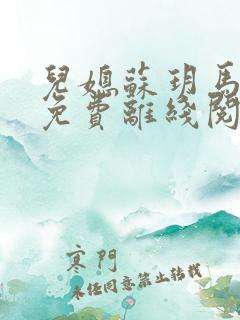 兒媳蘇玥馬
免費離綫閱
寒門
未经同意禁止转载